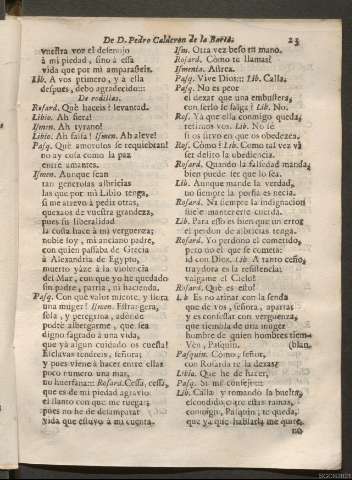 De D. Pedro Calderon de la Barca.
23
vuestra voz el despojo
à mi piedad, sino à essa
vida que por mi amparasteis.
Lib. A vos primero, y à ella
despues, debo agradecido:::
De rodillas.
Rosard. Què haceis? levantad.
Libio. Ah fiera!
Ismen. Ah tyrano!
Libio. Ah falsa! Ismen. Ah aleve!
Pasq. Què amorosos se requiebran!
no ay cosa como la paz
entre amantes.
Ismen. Aunque sean
tan generosas albricias
las que por mi Libio tenga,
si me atrevo à pedir otras,
quexaos de vuestra grandeza,
pues su liberalidad
la costa hace à mi verguenza;
noble soy, mi anciano padre,
con quien passaba de Grecia
à Alexandria de Egypto,
muerto yaze à la violencia
del Mar, con que yo he quedado
sin padre, patria, ni hacienda.
Pasq. Con que valor miente, y llora
una muger! Ismen. Estrangera,
sola, y peregrina, adonde
podrè albergarme, que sea
digno sagrado à una vida,
que yà algun cuidado os cuesta?
Esclavas tendreis, señora;
y pues viene à hacer entre ellas
poco numero una mas,
no huerfana::: Rosard. Cessa, cessa,
que es de mi piedad agravio
el llanto con que me ruegas;
pues no he de desamparar
vida que estuvo à mi cuenta.
Ism. Otra vez beso tu mano.
Rosard. Còmo te llamas?
Ismenia. Astrea.
Pasq. Vive Dios::: Lib. Calla.
Pasq. No es peor
el dexar que una embustera,
con serlo se salga? No! Lib.
Ros. Yà que ella conmigo queda,
retiraos vos. Lib. No sè
si os sirvo en que os obedezca.
Ros. Còmo? Lib. Como tal vez và
ser delito la obediencia.
Rosard. Quando la falsedad manda,
bien puede ser que lo sea.
Lib. Aunque mande la verdad,
no siempre la porfia es necia.
Rosard. Ni siempre la indignacion
suele mantenerse cuerda.
Lib. Para esso es bien que un error
el perdon de albricias tenga.
Rosard. Yo perdono el cometido,
pero no el que se comete:
id con Dios. Lib. A tanto ceño,
traydora es la resistencia;
valgame el Cielo!
Rosard. Què es esto?
Lib Es no atinar con la senda
que de vos, señora, apartas
y es confessar con verguenza,
que tiembla de una muger
hombre de quien hombres tiem-
Ven, Pasquin. (blan.
Pasquin. Còmo, señor,
con Rosarda te la dexas?
Libio. Què he de hacer,
Pasq. Si mi consejo:::
Lib. Calla y tomando la buelta,
escondido entre essas ramas,
conmigo, Pasquin, te queda,
que yà que hablarla me quite,
no